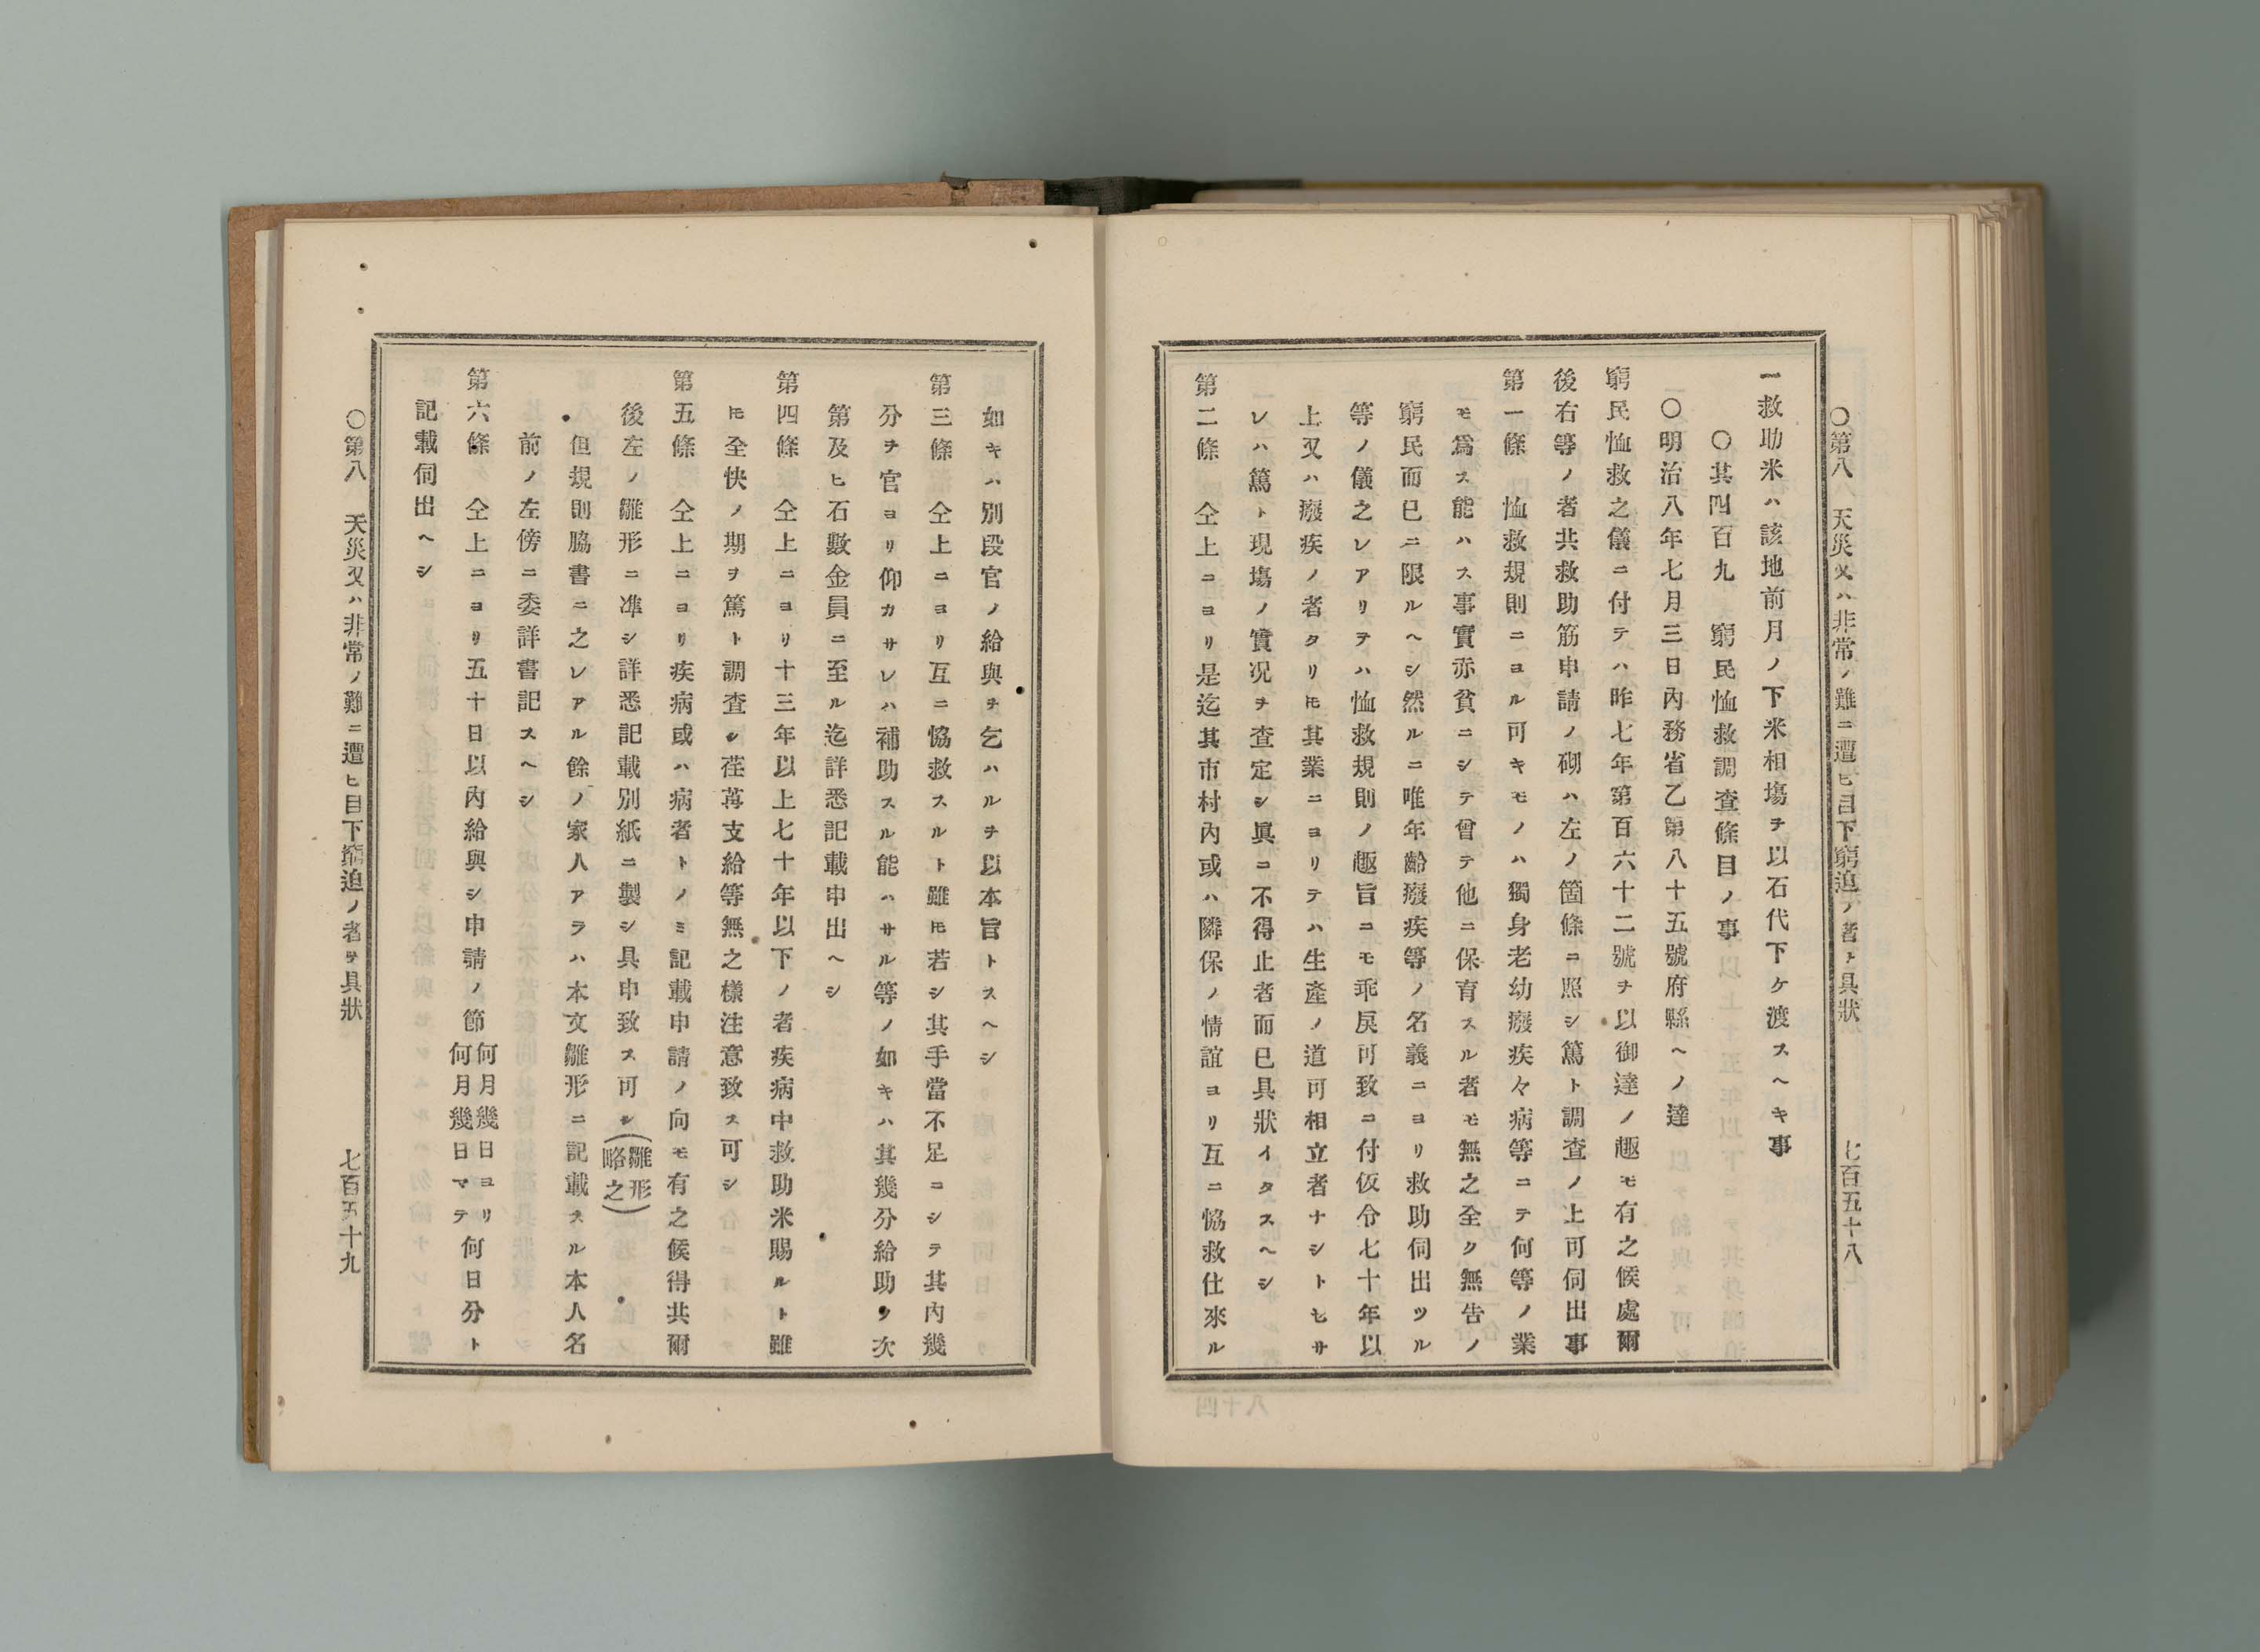 〇第八　天災又ハ非常ノ難ニ遭ヒ目下窮迫ノ者ヲ具狀　七百五十八
一救助米ハ該地前月ノ下米相塲ヲ以石代下ケ渡スヘキ事
〇其四百九　窮民恤救調査條目ノ事
〇明治八年七月三日內務省乙第八十五號府縣ヘノ達
窮民恤救之儀ニ付テハ昨七年第百六十二號ヲ以御達ノ趣モ有之候處爾
後右等ノ者共救助筋申請ノ砌ハ左ノ箇條ニ照シ篤ト調査ノ上可伺出事
第一條　恤救規則ニヨル可キモノハ獨身老幼癈疾々病等ニテ何等ノ業
モ爲ス能ハス事實亦貧ニシテ曾テ他ニ保育スル者モ無之全ク無告ノ
窮民而已ニ限ルヘシ然ルニ唯年齡癈疾等ノ名義ニヨリ救助伺出ツル
等ノ儀之レアリテハ恤救規則ノ趣旨ニモ乖戾可致ニ付仮令七十年以
上又ハ癈疾ノ者タリ𪜈其業ニヨリテハ生產ノ道可相立者ナシトセサ
レハ篤ト現塲ノ實况ヲ査定シ眞ニ不得止者而已具狀イタスヘシ
第二條　仝上ニヨリ是迄其市村內或ハ隣保ノ情誼ヨリ互ニ恊救仕來ル
如キハ別段官ノ給與ヲ乞ハルヲ以本旨トスヘシ
第三條　仝上ニヨリ互ニ恊救スルト雖𪜈若シ其手當不足ニシテ其內幾
分ヲ官ヨリ仰カサレハ補助スル能ハサル等ノ如キハ其幾分給助ノ次
第及ヒ石數金員ニ至ル迄詳悉記載申出ヘシ
第四條　仝上ニヨリ十三年以上七十年以下ノ者疾病中救助米賜ルト雖
𪜈全快ノ期ヲ篤ト調査シ荏苒支給等無之樣注意致ス可シ
第五條　仝上ニヨリ疾病或ハ病者トノミ記載申請ノ向モ有之候得共爾
後左ノ雛形ニ準シ詳悉記載別紙ニ製シ具申致ス可シ（雛形
略之）
但規則脇書ニ之レアル餘ノ家人アラハ本文雛形ニ記載スル本人名
前ノ左傍ニ委詳書記スヘシ
第六條　仝上ニヨリ五十日以內給與シ申請ノ節何月幾日ヨリ
何月幾日マテ何日分ト
記載伺出ヘシ
〇第八　天災又ハ非常ノ難ニ遭ヒ目下窮迫ノ者ヲ具狀　七百五十九